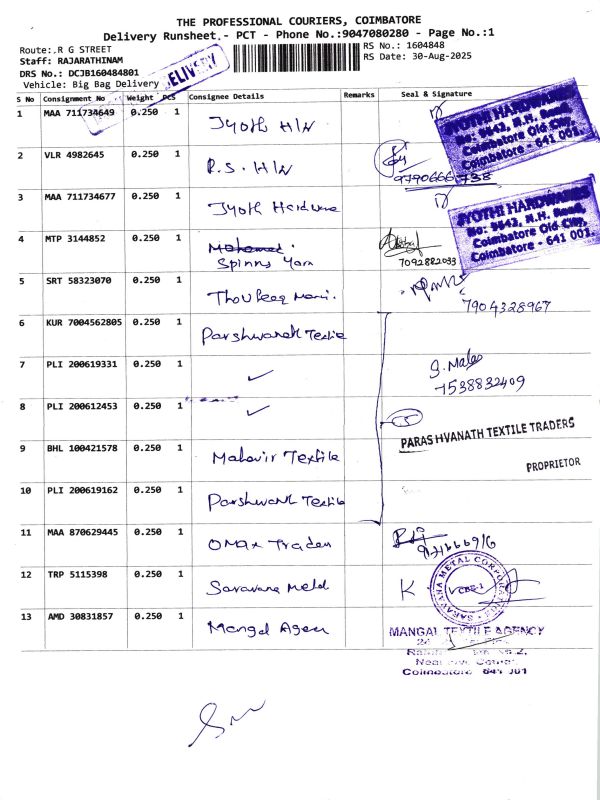 THE PROFESSIONAL COURIERS, COIMBATORE
Delivery Runsheet.- PCT - Phone No.:9047080280 - Page No.:1
Route:.R G STREET
RS No.: 1604848
Staff: RAJARATHINAM
RS Date: 30-Aug-2025
DRS No.: DCJB160484801
DELIVERY
Vehicle: Big Bag Delivery
S No Consignment No Weight PCS Consignee Details Remarks Seal & Signature
1 MAA 711734649 0.250 1 Jyoth H/W
JYOTHI HARDWARES
No: 9642, N.H. Road,
Coimbatore Old City,
Coimbatore - 641 001.
2 VLR 4982645 0.250 1 R.S. H/W
9790666738
3 MAA 711734677 0.250 1 Jyoth Hardware
JYOTHI HARDWARES
No: 9642, N.H. Road,
Coimbatore Old City,
Coimbatore - 641 001.
4 MTP 3144852 0.250 1 Mohamed
Spinns Yarn
7092882033
5 SRT 58323070 0.250 1
7904328967
6 KUR 7004562805 0.250 1 Parshwanath Textile
7 PLI 200619331 0.250 1 ✓
7538832409
8 PLI 200612453 0.250 1 ✓
PARASHVANATH TEXTILE TRADERS
PROPRIETOR
9 BHL 100421578 0.250 1 Mahavir Textile
10 PLI 200619162 0.250 1 Parshwanth Textile
11 MAA 870629445 0.250 1 Omax Traders
12 TRP 5115398 0.250 1 Saravana Metal
K
SARAVANA METAL CORPORATION
CBE-1
13 AMD 30831857 0.250 1 Mangal Agen
MANGAL TEXTILE AGENCY
Coimbatore 641 001